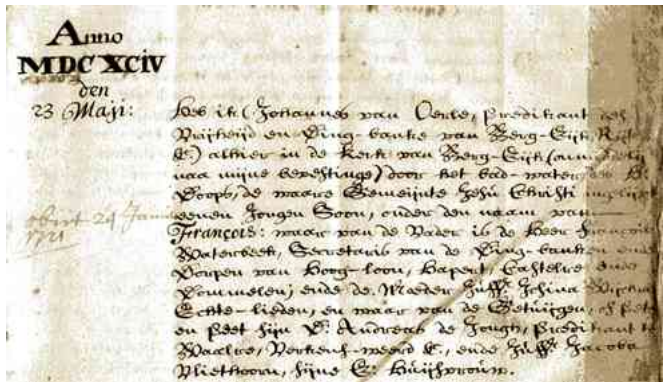 Anno
MDCXCIV
den
23 Maji:
heb ik (Johannes van Oerle, Predikant des
Vrijheijd en Ding-banke van Berg-Eijk, Rijt
&) alhier in de kerk van Berg-Eijk
naa mijne bevestinge) door het bad-water des H:
Doops, de waare Gemeijnte Jesu Christi
eenen Jongen Soon, onder den naam van
obiit 24
1721
François: waar van de Vader is de Heer François
Waterbeek, Secretaris van de Ding-banken ende
Dorpen van Hoog-loon, Hapert, Castelre ende
Dommelen; ende de Moeder Juffr. Jehina
Echte-lieden, en waar van de Getuijgen, of Pete
en Peet sijn D: Andreas de Jongh, Predikant te
Waalre, Valkens-weerd &, ende Juffr. Jacoba
Vliethoorn, sijne E: Huijsvrouw.